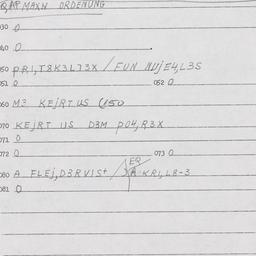 MAXN ORDENUNG
030 0
040 0
050 PRI,T8K3L73X / FUN NUJE4,L3S
051 0 052 0
060 M3 KEJRT US
070 KEJRT US D3M PO4,R3X
071 0
072 0 073 0
EQ
080 A FLEJ,D3RVIS+ / A KRI,L8-3
081 0